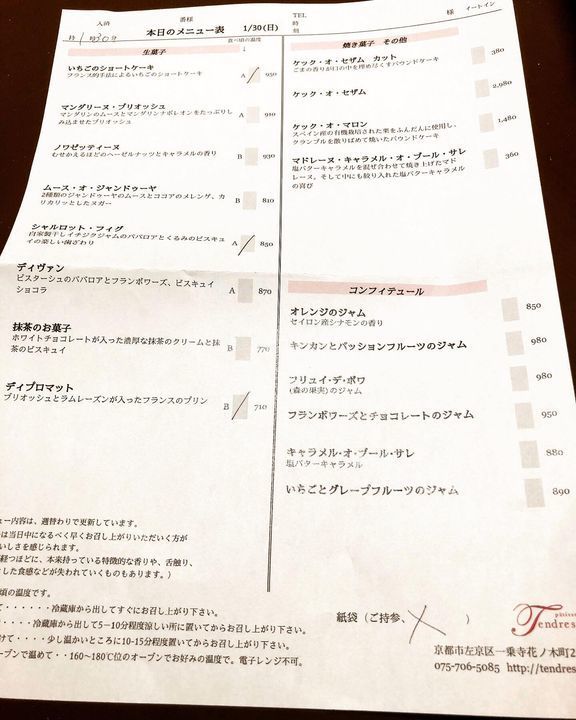 入済 番様 TEL 様 イートイン
時刻
本日のメニュー表 1/30(日)
食べ頃の温度
↓
生菓子
いちごのショートケーキ A 950
フランス的手法によるいちごのショートケーキ
マンダリーヌ・ブリオッシュ A 910
マンダリンのムースとマンダリンナポレオンをたっぷりし
み込ませたブリオッシュ
ノワゼッティーヌ B 930
むせかえるほどのヘーゼルナッツとキャラメルの香り
ムース・オ・ジャンドゥーヤ B 810
2種類のジャンドゥーヤのムースとココアのメレンゲ、カ
リカリッとしたヌガー
シャルロット・フィグ A 850
自家製干しイチジクジャムのババロアとくるみのビスキュ
イの楽しい歯ざわり
ディヴァン A 870
ピスターシュのババロアとフランボワーズ、ビスキュイ
ショコラ
抹茶のお菓子 B 770
ホワイトチョコレートが入った濃厚な抹茶のクリームと抹
茶のビスキュイ
ディプロマット B 710
ブリオッシュとラムレーズンが入ったフランスのプリン
焼き菓子 その他
ケック・オ・セザム カット 380
ごまの香りが口の中を埋め尽くすパウンドケーキ
ケック・オ・セザム 2,980
ケック・オ・マロン 1,480
スペイン産の有機栽培された栗をふんだんに使用し、
クランブルを散りばめて焼いたパウンドケーキ
マドレーヌ・キャラメル・オ・ブール・サレ 360
塩バターキャラメルを混ぜ合わせて焼き上げたマド
レーヌ、そして中にも絞り入れた塩バターキャラメル
の喜び
コンフィテュール
オレンジのジャム 850
セイロン産シナモンの香り
キンカンとパッションフルーツのジャム 980
フリュイ・デ・ボワ 980
(森の果実)のジャム
フランボワーズとチョコレートのジャム 950
キャラメル・オ・ブール・サレ 880
塩バターキャラメル
いちごとグレープフルーツのジャム 890
ュー内容は、週替わりで更新しています。
は当日中になるべく早くお召し上がりいただく方が
いしさを感じられます。
経つほどに、本来持っている特徴的な香りや、舌触り、
した食感などが失われていくものもあります。)
頃の温度です。
て・・・・・・・冷蔵庫から出してすぐにお召し上がり下さい。
・・・・・冷蔵庫から出して5－10分程度涼しい所に置いてからお召し上がり下さい。
けて・・・・・少し温かいところに10-15分程度置いてからお召し上がり下さい。
ーブンで温めて・・160～180℃位のオーブンでお好みの温度で。電子レンジ不可。
紙袋 (ご持参、 )
pâtiss
Tendres
京都市左京区一乗寺花ノ木町2
075-706-5085 http://tendres